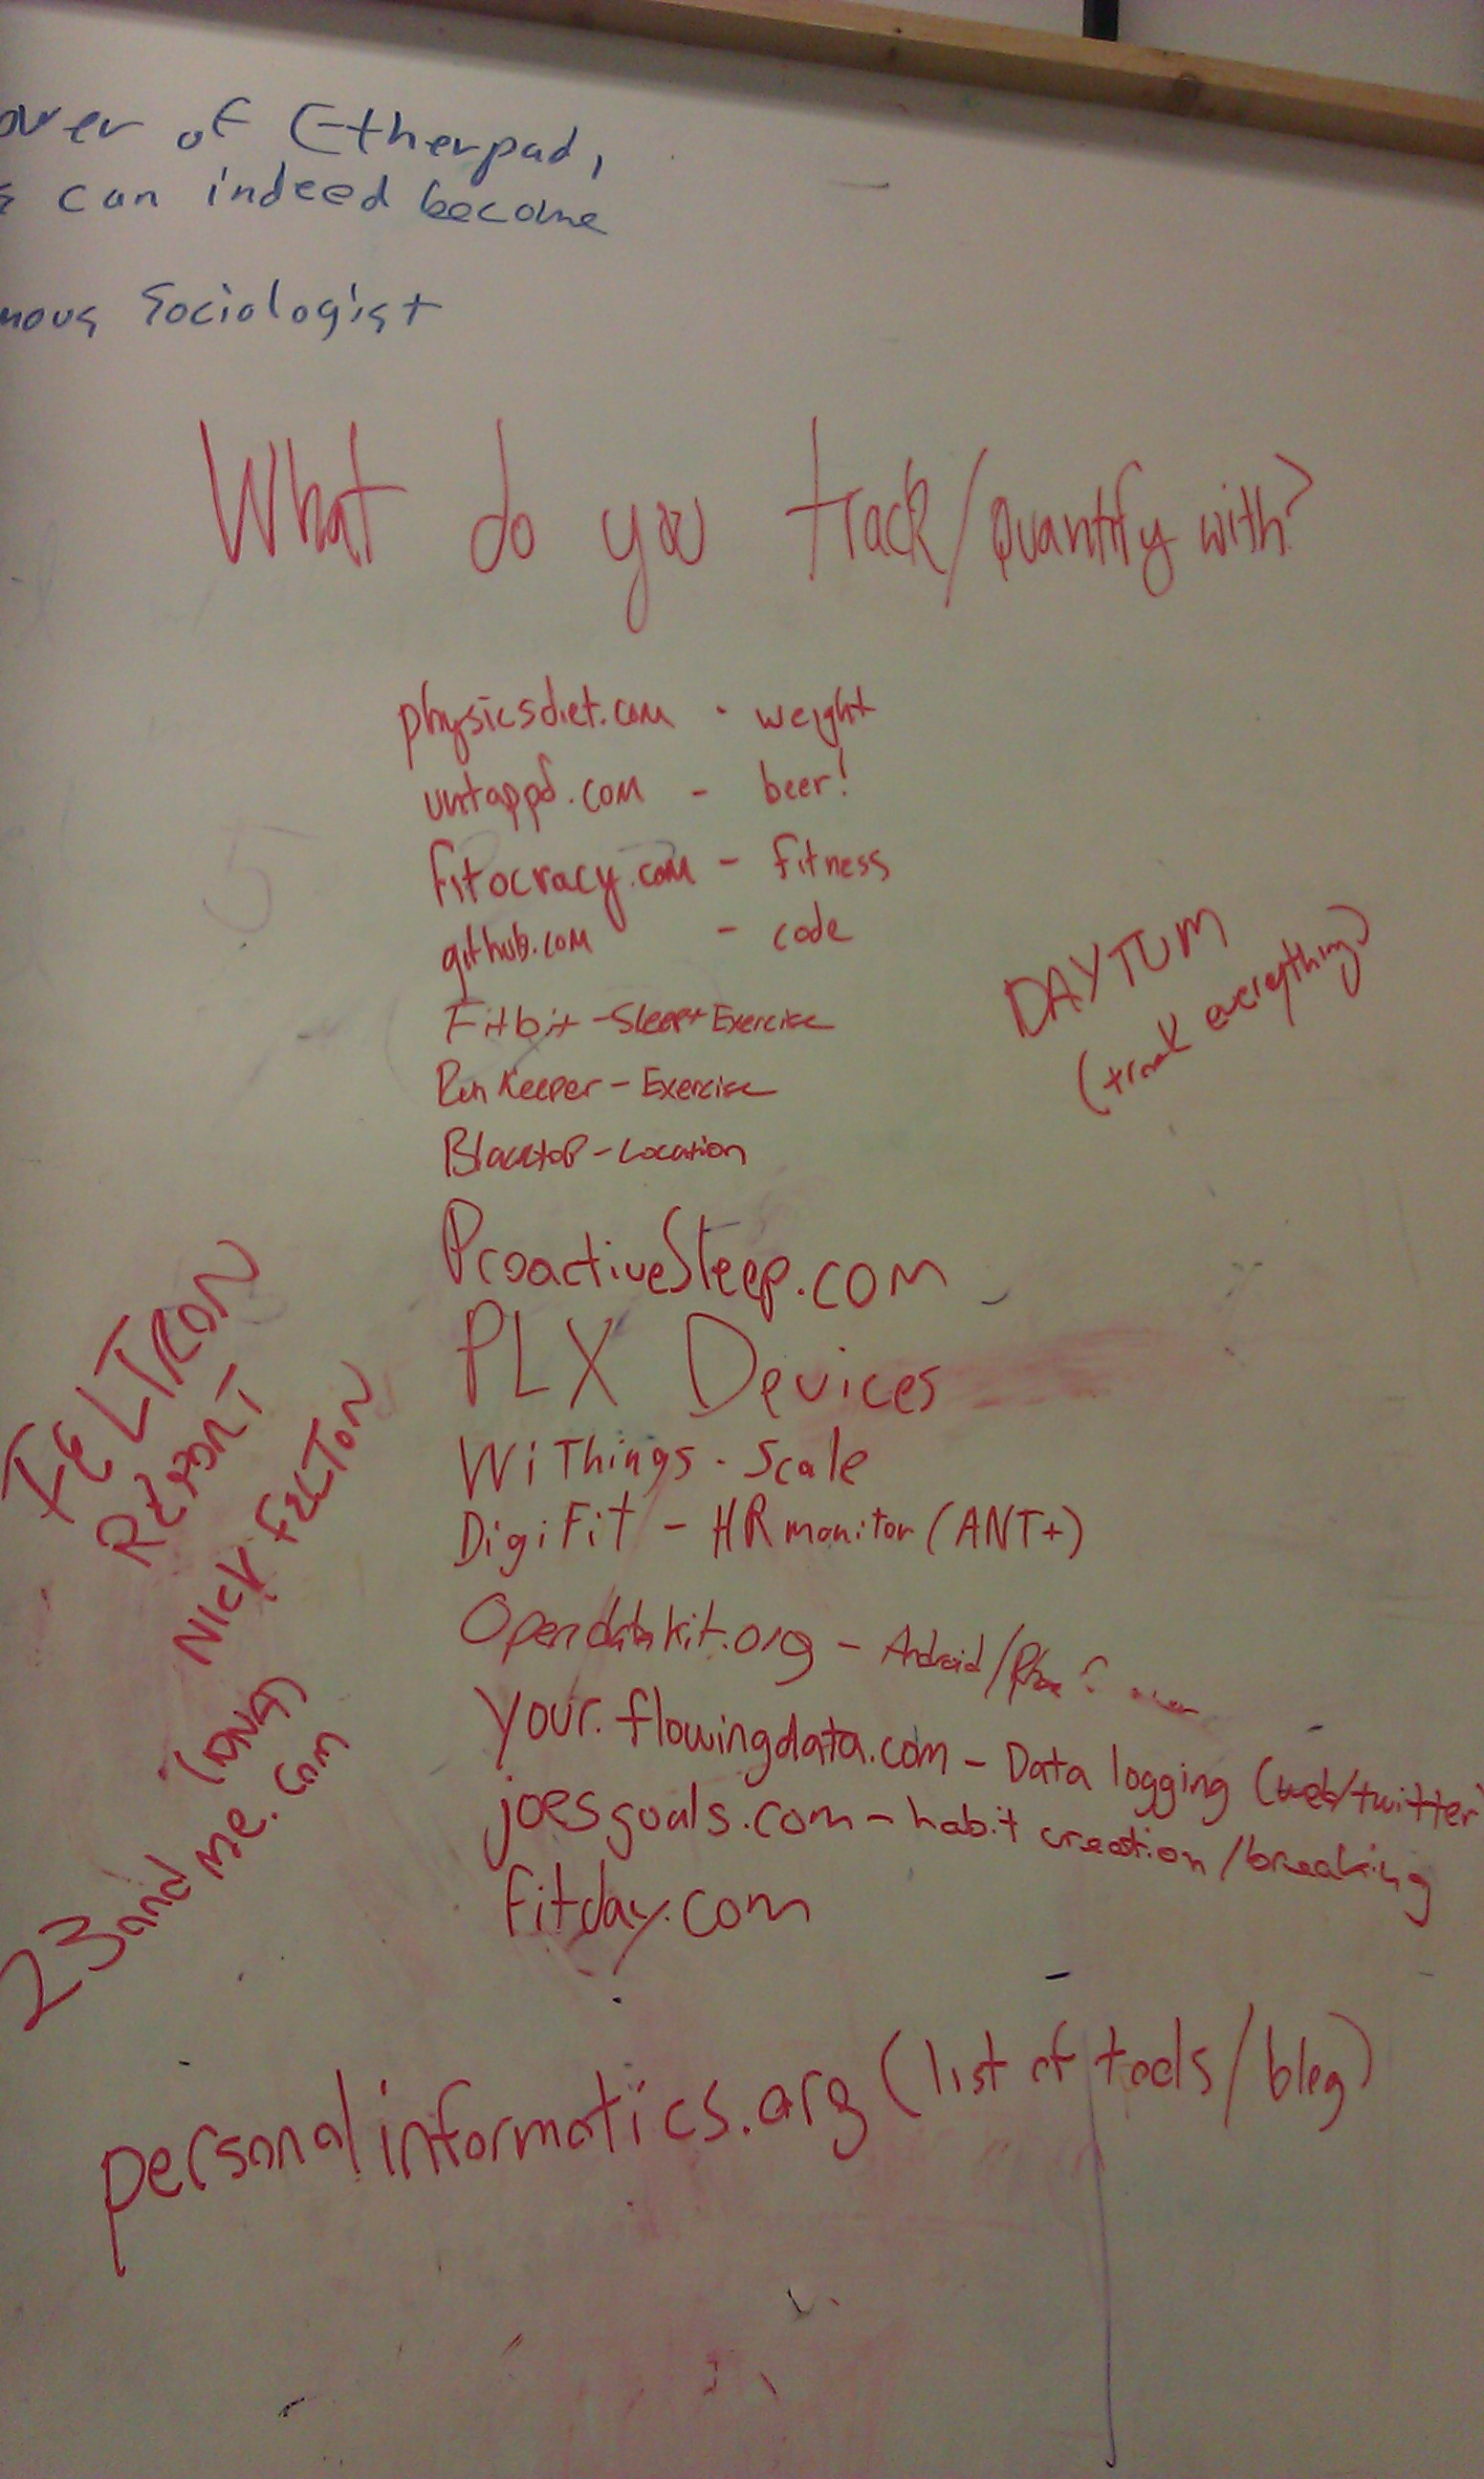 of Etherpad,
can indeed become
Sociologist
What do you track/quantify with?
physicsdiet.com - weight
untappd.com - beer!
fitocracy.com - fitness
github.com - code
DAYTUM
(track everything)
Fitbit - Sleep + Exercise
RunKeeper - Exercise
Blacktop - Location
ProactiveSleep.com
PLX Devices
FELTRON
REPORT
NICK FELTON
WiThings - Scale
DigiFit - HR monitor (ANT+)
Opendatakit.org - Android/
your.flowingdata.com - Data logging (web/twitter)
joesgoals.com - habit creation/breaking
fitday.com
(DNA)
23andme.com
personalinformatics.org (list of tools/blog)